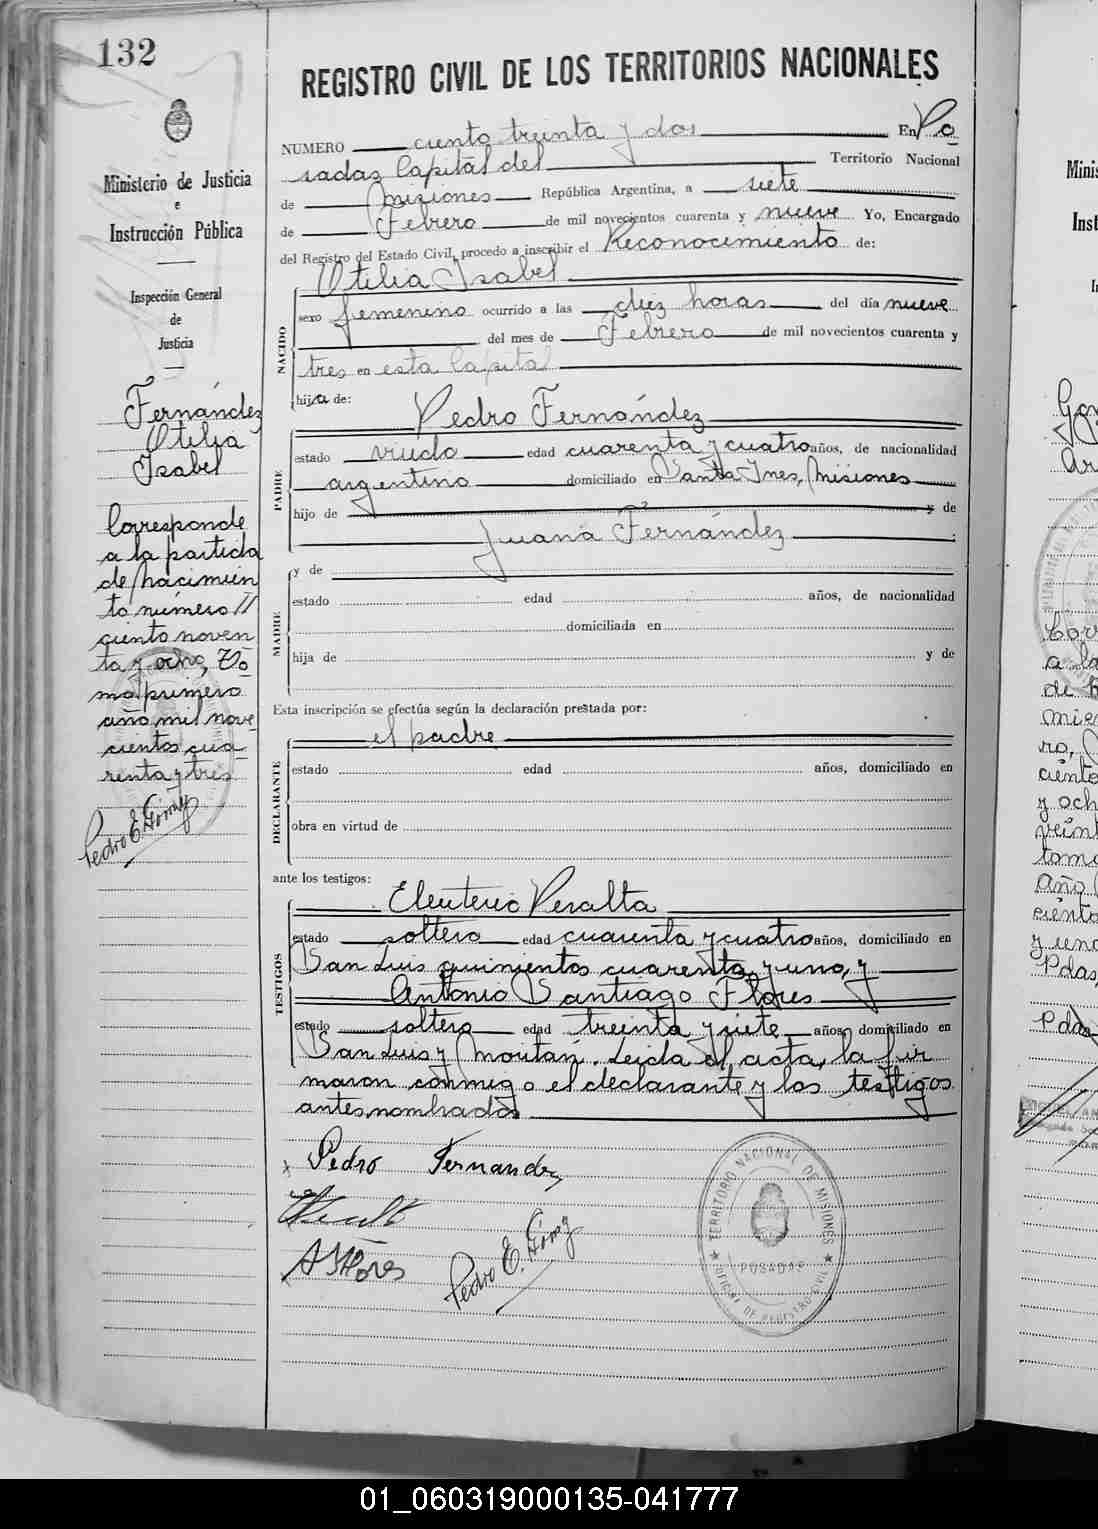 132
REGISTRO CIVIL DE LOS TERRITORIOS NACIONALES
Ministerio de Justicia
e
Instrucción Pública
Inspección General
de
Justicia
Fernández
Otilia
Isabel
Corresponde
a la partida
de nacimien
to número //
ciento noven
ta y ocho, To
mo primero
año mil nove
cientos cua-
renta y tres
Pedro E. Gómez
NUMERO ciento treinta y dos En Po
sadas Capital del Territorio Nacional
de Misiones República Argentina, a siete
de Febrero de mil novecientos cuarenta y nueve Yo, Encargado
del Registro del Estado Civil, procedo a inscribir el Reconocimiento de:
Otilia Isabel
NACIDO
sexo femenino ocurrido a las diez horas del día nueve
del mes de Febrero de mil novecientos cuarenta y
tres en esta Capital
hija de:
Pedro Fernández
PADRE
estado viudo edad cuarenta y cuatro años, de nacionalidad
argentino domiciliado en Santa Ines, Misiones
hijo de y de
Juana Fernández
y de
MADRE
estado edad años, de nacionalidad
domiciliada en
hija de y de
Esta inscripción se efectúa según la declaración prestada por:
el padre
DECLARANTE
estado edad años, domiciliado en
obra en virtud de
ante los testigos:
Eleuterio Peralta
TESTIGOS
estado soltero edad cuarenta y cuatro años, domiciliado en
San Luis quinientos cuarenta y uno, y
Antonio Santiago Flores
estado soltero edad treinta y siete años, domiciliado en
San Luis y Moritán. Leida el acta, la fir
maron conmigo el declarante y los testigos
antes nombrados
x Pedro Fernandez
A S Flores
Pedro E. Gómez
TERRITORIO NACIONAL DE MISIONES
POSADAS
OFICINA DE REGISTRO CIVIL
01_060319000135-041777